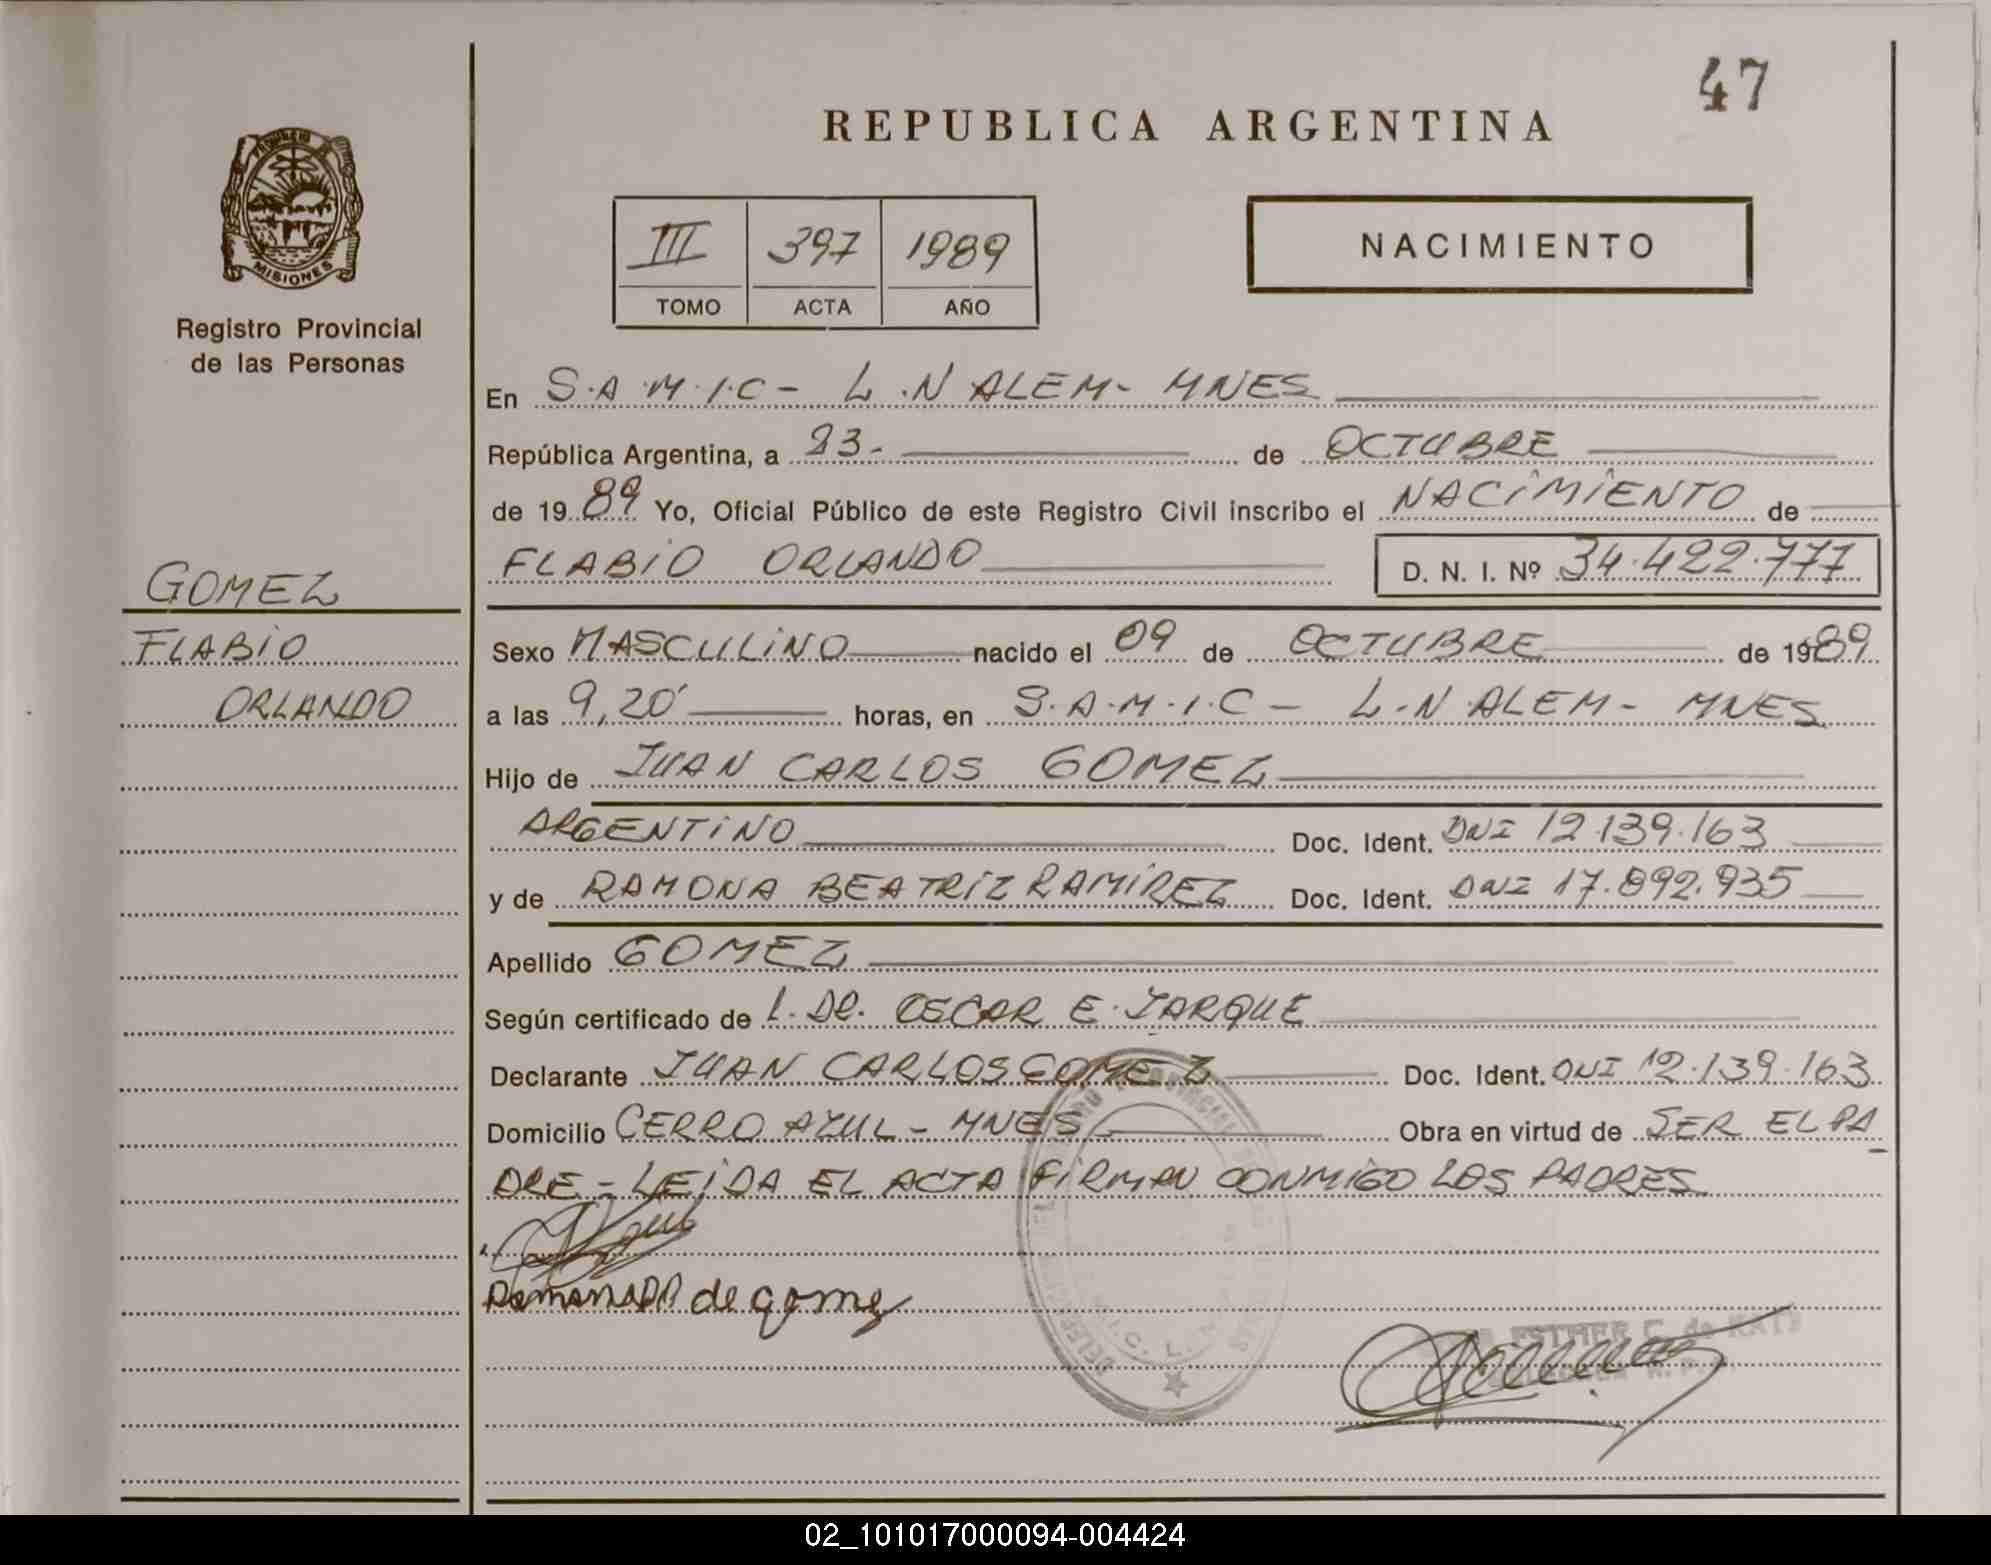 47
REPUBLICA ARGENTINA
PROVINCIA DE
MISIONES
Registro Provincial
de las Personas
III 397 1989
TOMO ACTA AÑO
NACIMIENTO
En S.A.M.I.C - L.N ALEM - MNES
República Argentina, a 23- de OCTUBRE
de 1989 Yo, Oficial Público de este Registro Civil inscribo el NACIMIENTO de
FLABIO ORLANDO D. N. I. Nº 34.422.777
GOMEZ
FLABIO
ORLANDO
Sexo MASCULINO nacido el 09 de OCTUBRE de 1989
a las 9,20' horas, en S.A.M.I.C - L.N ALEM - MNES
Hijo de JUAN CARLOS GOMEZ
ARGENTINO Doc. Ident. DNI 12.139.163
y de RAMONA BEATRIZ RAMIREZ Doc. Ident. DNI 17.892.935
Apellido GOMEZ
Según certificado de L. DR. OSCAR E. JARQUE
Declarante JUAN CARLOS GOMEZ Doc. Ident. DNI 12.139.163
Domicilio CERRO AZUL - MNES - Obra en virtud de SER EL PA
DRE - LEIDA EL ACTA FIRMAN CONMIGO LOS PADRES
de gomez
ESTHER C. de
02_101017000094-004424